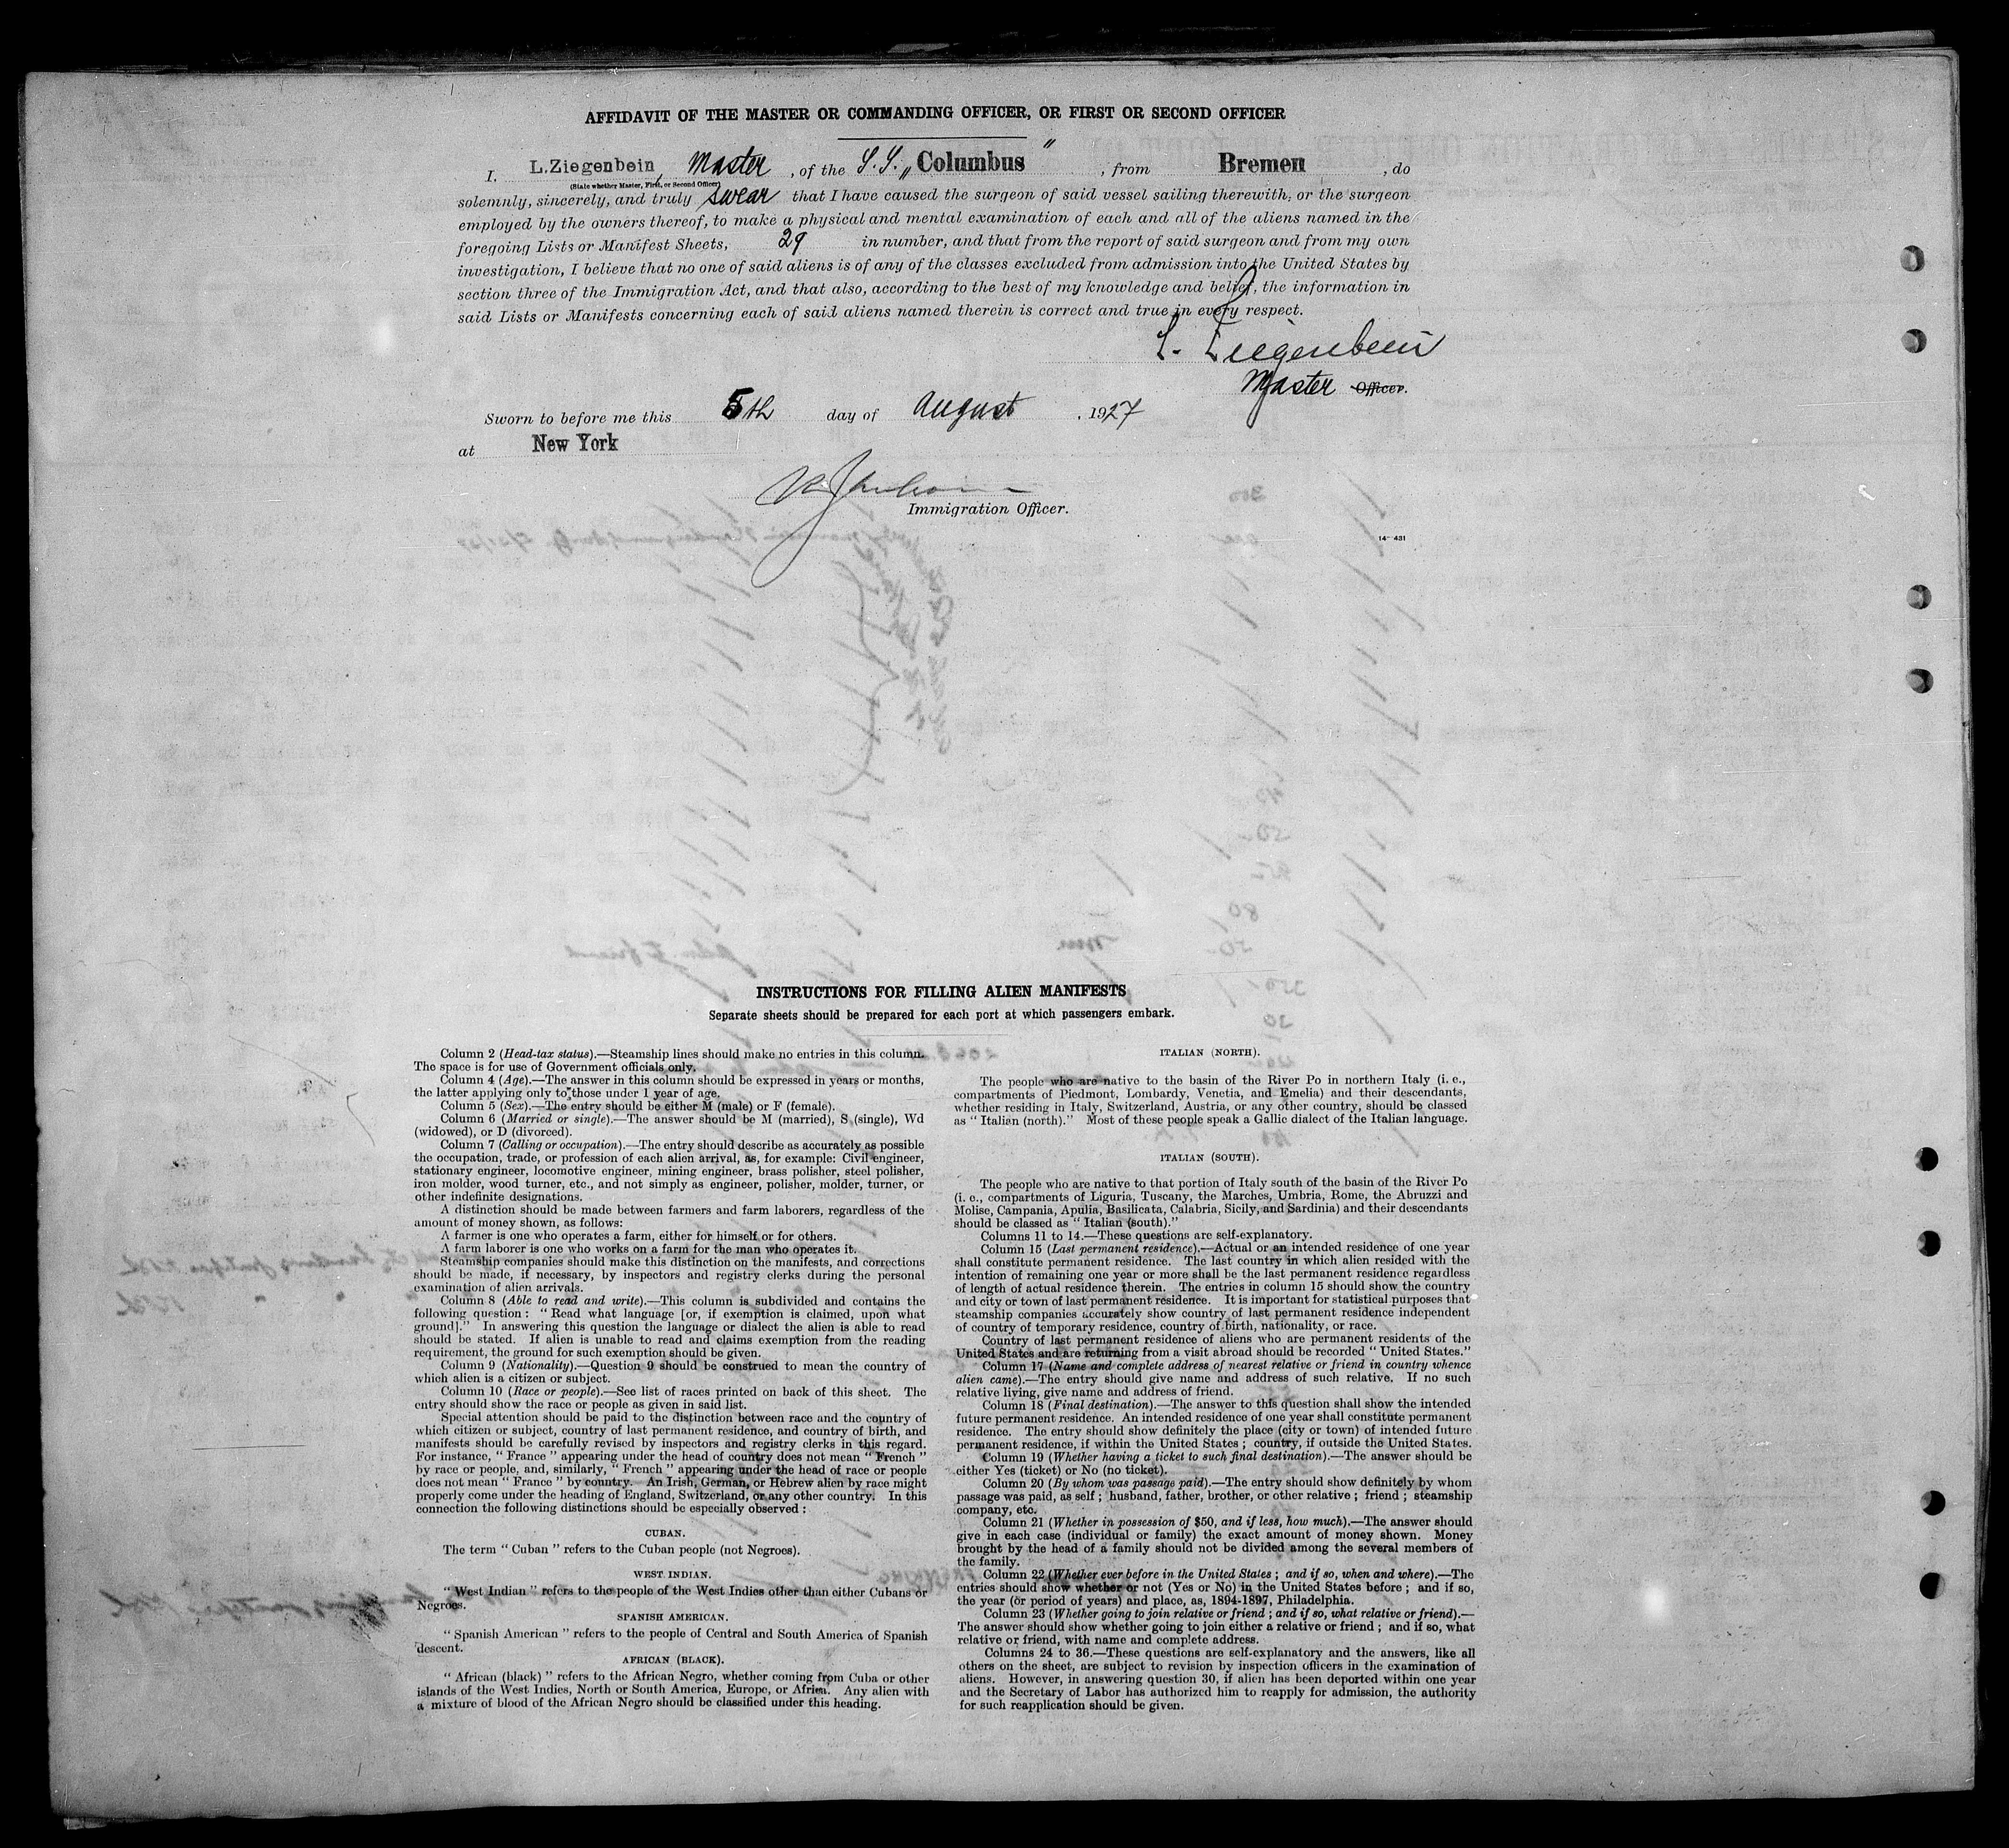 AFFIDAVIT OF THE MASTER OR COMMANDING OFFICER, OR FIRST OR SECOND OFFICER
I. L.Ziegenbein, Master , of the S.S. „Columbus" , from Bremen , do
(State whether Master, First, or Second Officer)
solemnly, sincerely, and truly swear that I have caused the surgeon of said vessel sailing therewith, or the surgeon
employed by the owners thereof, to make a physical and mental examination of each and all of the aliens named in the
foregoing Lists or Manifest Sheets, 29 in number, and that from the report of said surgeon and from my own
investigation, I believe that no one of said aliens is of any of the classes excluded from admission into the United States by
section three of the Immigration Act, and that also, according to the best of my knowledge and belief, the information in
said Lists or Manifests concerning each of said aliens named therein is correct and true in every respect.
L. Ziegenbein
Master Officer.
Sworn to before me this 5th day of August , 1927
at New York
Immigration Officer.
14—431
INSTRUCTIONS FOR FILLING ALIEN MANIFESTS
Separate sheets should be prepared for each port at which passengers embark.
Column 2 (Head-tax status).—Steamship lines should make no entries in this column.
The space is for use of Government officials only.
Column 4 (Age).—The answer in this column should be expressed in years or months,
the latter applying only to those under 1 year of age.
Column 5 (Sex).—The entry should be either M (male) or F (female).
Column 6 (Married or single).—The answer should be M (married), S (single), Wd
(widowed), or D (divorced).
Column 7 (Calling or occupation).—The entry should describe as accurately as possible
the occupation, trade, or profession of each alien arrival, as, for example: Civil engineer,
stationary engineer, locomotive engineer, mining engineer, brass polisher, steel polisher,
iron molder, wood turner, etc., and not simply as engineer, polisher, molder, turner, or
other indefinite designations.
A distinction should be made between farmers and farm laborers, regardless of the
amount of money shown, as follows:
A farmer is one who operates a farm, either for himself or for others.
A farm laborer is one who works on a farm for the man who operates it.
Steamship companies should make this distinction on the manifests, and corrections
should be made, if necessary, by inspectors and registry clerks during the personal
examination of alien arrivals.
Column 8 (Able to read and write).—This column is subdivided and contains the
following question: "Read what language [or, if exemption is claimed, upon what
ground]." In answering this question the language or dialect the alien is able to read
should be stated. If alien is unable to read and claims exemption from the reading
requirement, the ground for such exemption should be given.
Column 9 (Nationality).—Question 9 should be construed to mean the country of
which alien is a citizen or subject.
Column 10 (Race or people).—See list of races printed on back of this sheet. The
entry should show the race or people as given in said list.
Special attention should be paid to the distinction between race and the country of
which citizen or subject, country of last permanent residence, and country of birth, and
manifests should be carefully revised by inspectors and registry clerks in this regard.
For instance, "France" appearing under the head of country does not mean "French"
by race or people, and, similarly, "French" appearing under the head of race or people
does not mean "France" by country. An Irish, German, or Hebrew alien by race might
properly come under the heading of England, Switzerland, or any other country. In this
connection the following distinctions should be especially observed:
CUBAN.
The term "Cuban" refers to the Cuban people (not Negroes).
WEST INDIAN.
"West Indian" refers to the people of the West Indies other than either Cubans or
Negroes.
SPANISH AMERICAN.
"Spanish American" refers to the people of Central and South America of Spanish
descent.
AFRICAN (BLACK).
"African (black)" refers to the African Negro, whether coming from Cuba or other
islands of the West Indies, North or South America, Europe, or Africa. Any alien with
a mixture of blood of the African Negro should be classified under this heading.
ITALIAN (NORTH).
The people who are native to the basin of the River Po in northern Italy (i. e.,
compartments of Piedmont, Lombardy, Venetia, and Emelia) and their descendants,
whether residing in Italy, Switzerland, Austria, or any other country, should be classed
as "Italian (north)." Most of these people speak a Gallic dialect of the Italian language.
ITALIAN (SOUTH).
The people who are native to that portion of Italy south of the basin of the River Po
(i. e., compartments of Liguria, Tuscany, the Marches, Umbria, Rome, the Abruzzi and
Molise, Campania, Apulia, Basilicata, Calabria, Sicily, and Sardinia) and their descendants
should be classed as "Italian (south)."
Columns 11 to 14.—These questions are self-explanatory.
Column 15 (Last permanent residence).—Actual or an intended residence of one year
shall constitute permanent residence. The last country in which alien resided with the
intention of remaining one year or more shall be the last permanent residence regardless
of length of actual residence therein. The entries in column 15 should show the country
and city or town of last permanent residence. It is important for statistical purposes that
steamship companies accurately show country of last permanent residence independent
of country of temporary residence, country of birth, nationality, or race.
Country of last permanent residence of aliens who are permanent residents of the
United States and are returning from a visit abroad should be recorded "United States."
Column 17 (Name and complete address of nearest relative or friend in country whence
alien came).—The entry should give name and address of such relative. If no such
relative living, give name and address of friend.
Column 18 (Final destination).—The answer to this question shall show the intended
future permanent residence. An intended residence of one year shall constitute permanent
residence. The entry should show definitely the place (city or town) of intended future
permanent residence, if within the United States; country, if outside the United States.
Column 19 (Whether having a ticket to such final destination).—The answer should be
either Yes (ticket) or No (no ticket).
Column 20 (By whom was passage paid).—The entry should show definitely by whom
passage was paid, as self; husband, father, brother, or other relative; friend; steamship
company, etc.
Column 21 (Whether in possession of $50, and if less, how much).—The answer should
give in each case (individual or family) the exact amount of money shown. Money
brought by the head of a family should not be divided among the several members of
the family.
Column 22 (Whether ever before in the United States; and if so, when and where).—The
entries should show whether or not (Yes or No) in the United States before; and if so,
the year (or period of years) and place, as, 1894-1897, Philadelphia.
Column 23 (Whether going to join relative or friend; and if so, what relative or friend).—
The answer should show whether going to join either a relative or friend; and if so, what
relative or friend, with name and complete address.
Columns 24 to 36.—These questions are self-explanatory and the answers, like all
others on the sheet, are subject to revision by inspection officers in the examination of
aliens. However, in answering question 30, if alien has been deported within one year
and the Secretary of Labor has authorized him to reapply for admission, the authority
for such reapplication should be given.